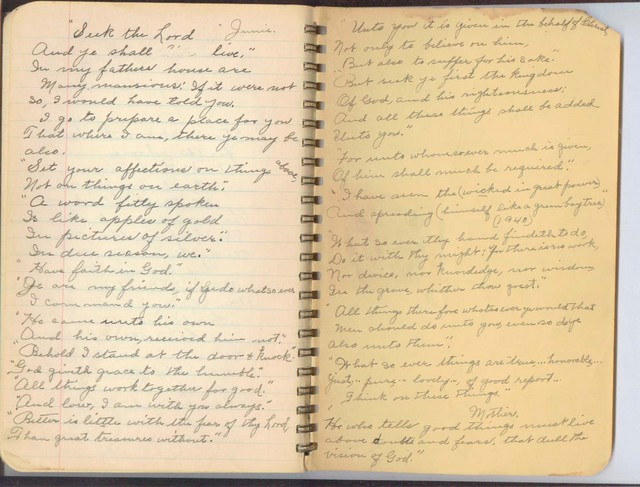 "Seek the Lord June.
And ye shall live."
In my fathers house are
Many mansions: If it were not
so, I would have told you.
I go to prepare a place for you
That where I am, there ye may be
also.
"Set your affections on things above,
Not on things on earth."
"A word fitly spoken
Is like apples of gold
In pictures of silver."
In due season, we."
"Have faith in God."
"Ye are my friends, if ye do whatsoever
I command you."
"He came unto his own
And his own, received him not."
"Behold I stand at the door & knock."
"God giveth grace to the humble."
"All things work together for good."
"And lo, I am with you always."
"Better is little with the fear of thy Lord,
Than great treasures without."
"Unto you it is given in the behalf of Christ,
Not only to believe on him,
But also to suffer for his sake."
"But seek ye first the kingdom
Of God and his righteousness;
And all these things shall be added
Unto you."
"For unto whomsoever much is given,
Of him shall much be required."
"I have seen the (wicked in great power)
And spreading (himself like a green bay tree)"
(1940)
"What so ever thy hand findeth to do,
Do it with thy might; for there is no work,
Nor device, nor knowledge, nor wisdom
In the grave, whither thou goest."
"All things therefore whatsoever ye would that
Men should do unto you, even so do ye
also unto them."
"What so ever things are true,.. honorable...
Just,.. pure.. lovely.., of good report...
Think on these things."
Mother.
"He who tells good things must live
above doubts and fears, that dull the
vision of God."